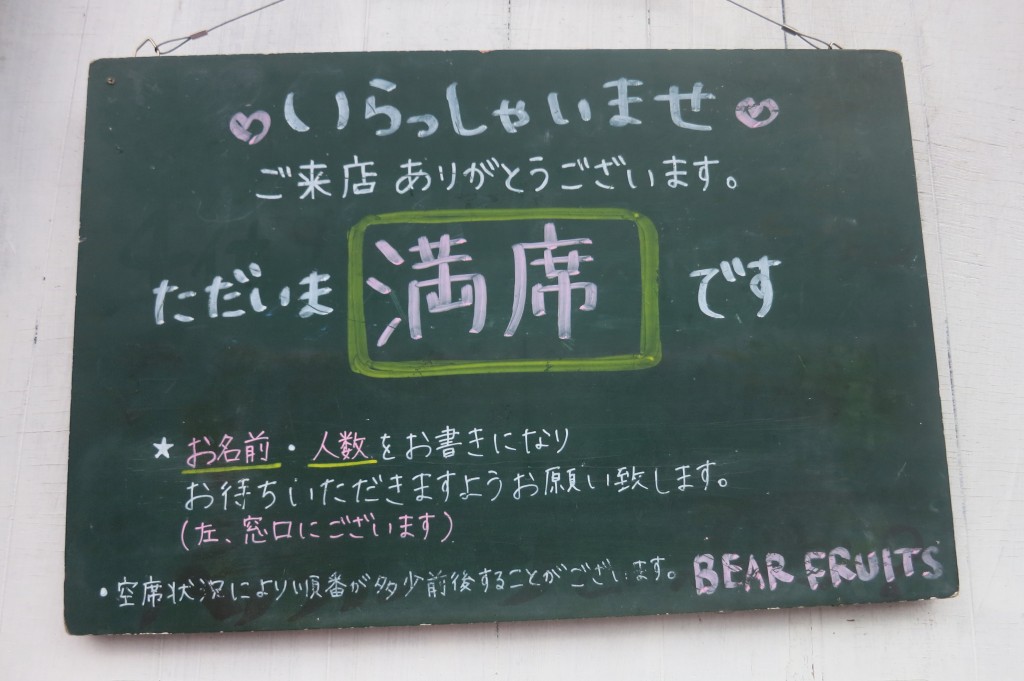 いらっしゃいませ
ご来店ありがとうございます。
ただいま 満席 です
★お名前・人数をお書きになり
お待ちいただきますようお願い致します。
(左、窓口にございます)
・空席状況により順番が多少前後することがございます。
BEAR FRUITS